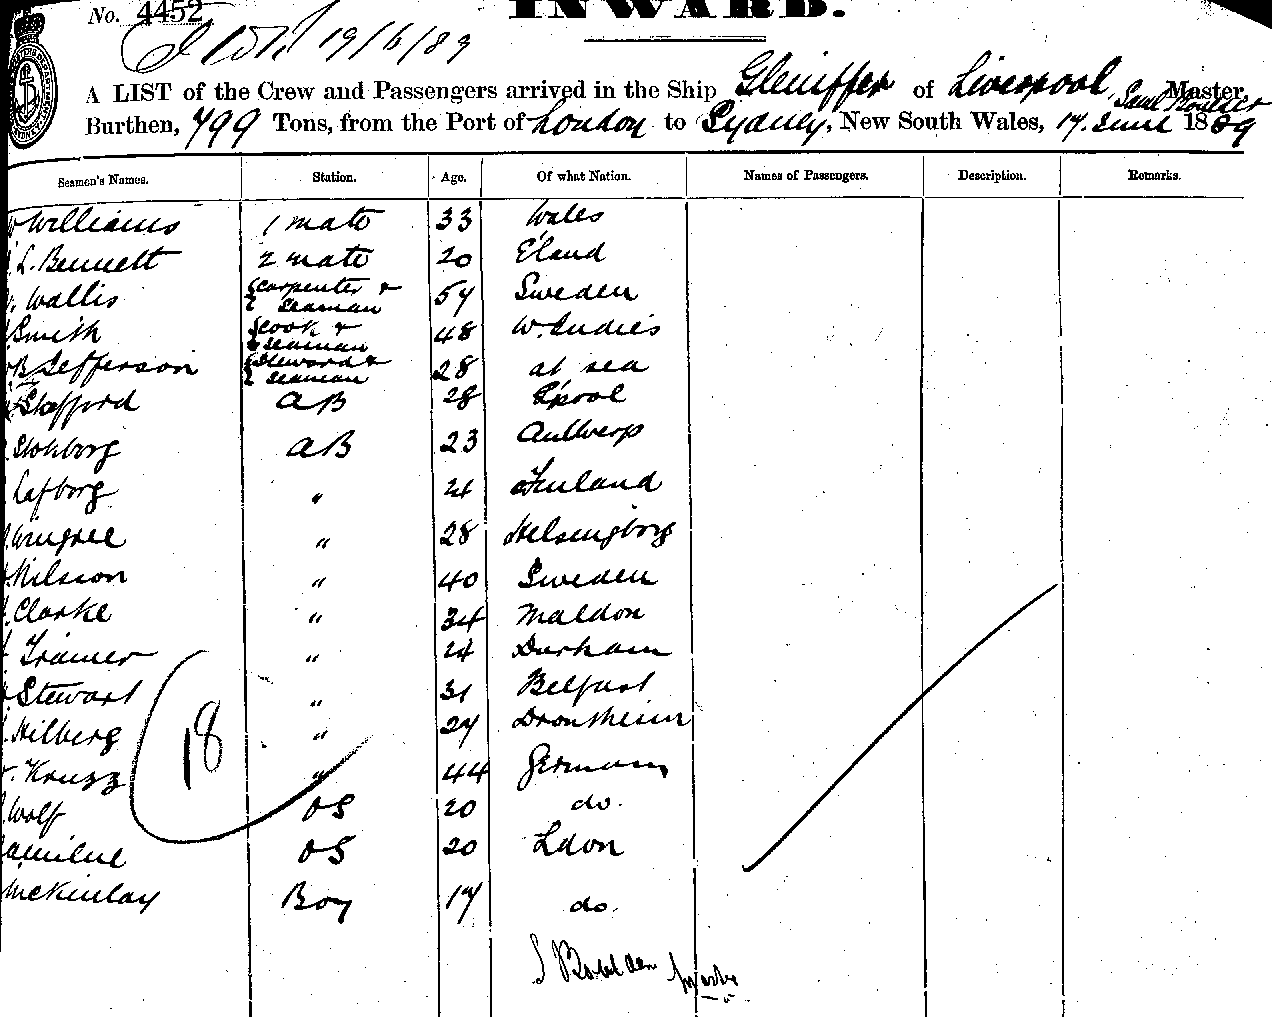 No. 4452
INWARD.
19/6/89
A LIST of the Crew and Passengers arrived in the Ship Gleniffer of Liverpool, Saml Master,
Burthen, 799 Tons, from the Port of London to Sydney, New South Wales, 17 June 1889
Seamen's Names. Station. Age. Of what Nation. Names of Passengers. Description. Remarks.
Williams 1 mate 33 Wales
L. Bennett 2 mate 20 E'land
Wallis Carpenter & Seaman 57 Sweden
Smith Cook & Seaman 48 W. Indies
B Jefferson Steward & Seaman 28 at sea
Stafford AB 28 L'pool
Stokborg AB 23 Antwerp
Lafborg " 21 Finland
" 28 Helsingborg
Nilsson " 40 Sweden
Clarke " 34 Maldon
Framer " 24 Durham
Stewart " 31 Belfast
Hilberg " 27 Drontheim
Kruzz " 44 Germany
Wolf OS 20 do.
OS 20 Ldon
McKinlay Boy 17 do.
18
Master